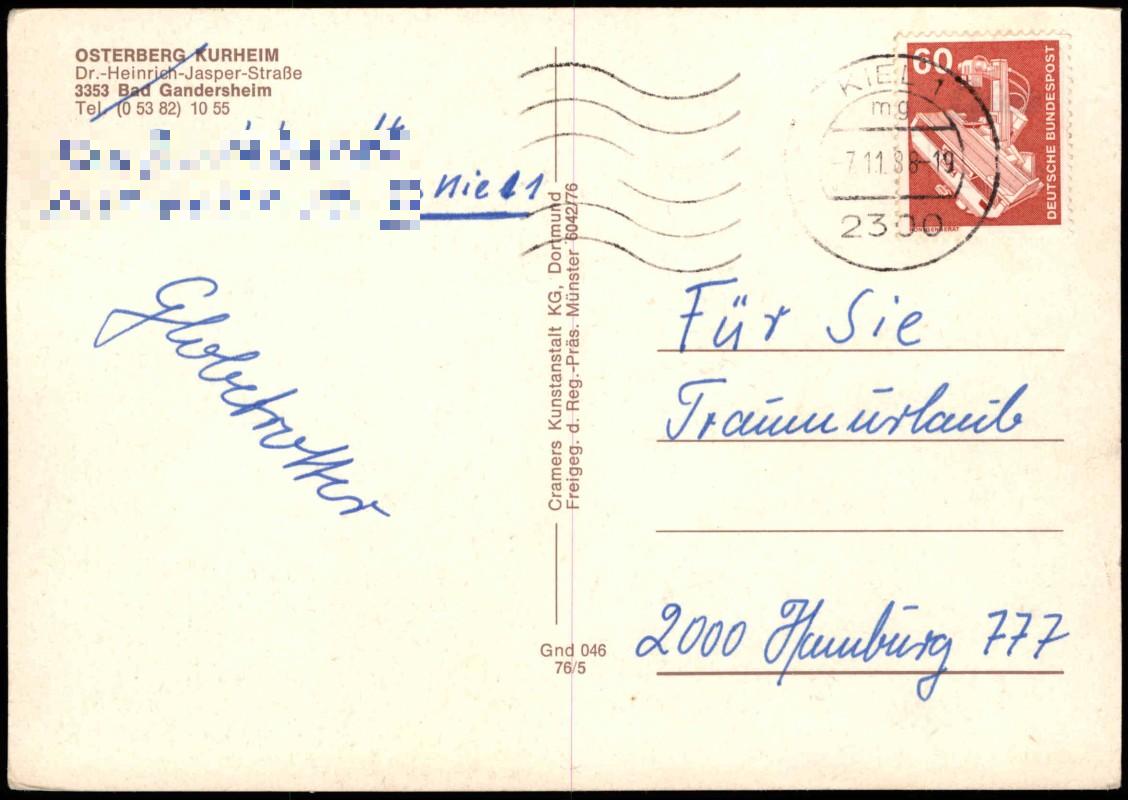 OSTERBERG KURHEIM
Dr.-Heinrich-Jasper-Straße
3353 Bad Gandersheim
Tel. (0 53 82) 10 55
Kiel 1
Globetrotter
Cramers Kunstanstalt KG, Dortmund
Freigeg. d. Reg.-Präs. Münster 6042/76
Gnd 046
76/5
KIEL 1
mg
-7.11.88-19
2300
60
DEUTSCHE BUNDESPOST
RÖNTGENGERÄT
Für Sie
Traumurlaub
2000 Hamburg 777